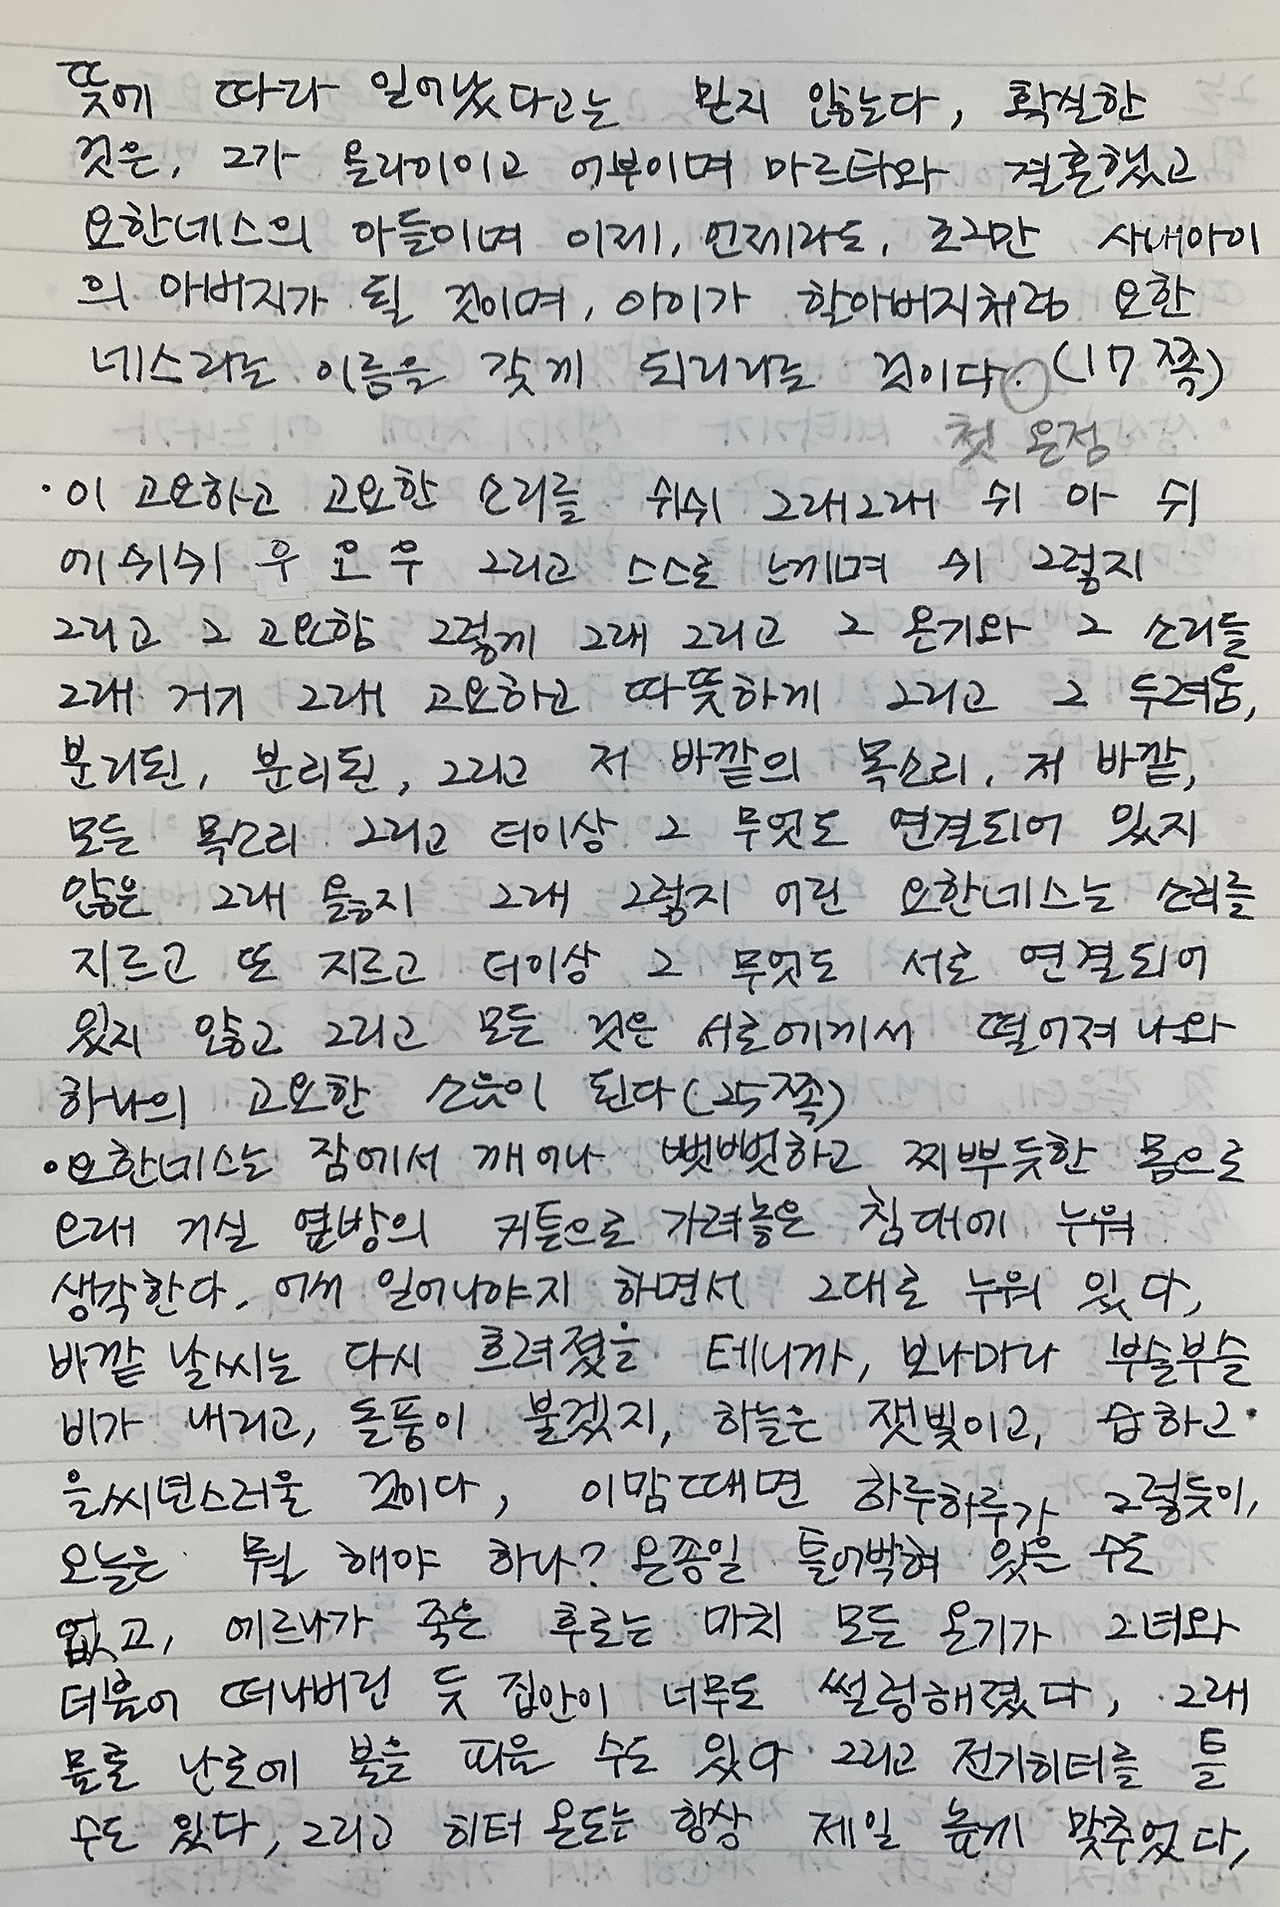 뜻에 따라 일어났다고는 믿지 않는다, 확실한
것은, 그가 올라이이고 어부이며 마르타와 결혼했고
요한네스의 아들이며 이제, 언제라도, 조그만 사내아이
의 아버지가 될 것이며, 아이가 할아버지처럼 요한
네스라는 이름을 갖게 되리라는 것이다. (17쪽)
첫 온점
· 이 고요하고 고요한 소리를 쉬쉬 그래그래 쉬 아 쉬
에 쉬쉬 우 오 우 그리고 스스로 느끼며 쉬 그렇지
그리고 그 고요함 그렇게 그래 그리고 그 온기와 그 소리들
그래 거기 그래 고요하고 따뜻하게 그리고 그 두려움,
분리된, 분리된, 그리고 저 바깥의 목소리, 저 바깥,
모든 목소리 그리고 더이상 그 무엇도 연결되어 있지
않은 그래 옳지 그래 그렇지 어린 요한네스는 소리를
지르고 또 지르고 더이상 그 무엇도 서로 연결되어
있지 않고 그리고 모든 것은 서로에게서 떨어져 나와
하나의 고요한 소음이 된다(25쪽)
· 요한네스는 잠에서 깨어나 뻣뻣하고 찌뿌듯한 몸으로
오래 거실 옆방의 커튼으로 가려놓은 침대에 누워
생각한다, 어서 일어나야지 하면서 그대로 누워 있다,
바깥 날씨는 다시 흐려졌을 테니까, 보나마나 부슬부슬
비가 내리고, 돌풍이 불겠지, 하늘은 잿빛이고, 습하고
을씨년스러울 것이다, 이맘때면 하루하루가 그렇듯이,
오늘은 뭘 해야 하나? 온종일 틀어박혀 있을 수도
없고, 에르나가 죽은 후로는 마치 모든 온기가 그녀와
더불어 떠나버린 듯 집안이 너무도 썰렁해졌다, 그래
물론 난로에 불을 피울 수도 있다 그리고 전기히터를 틀
수도 있다, 그리고 히터 온도는 항상 제일 높게 맞추었다,